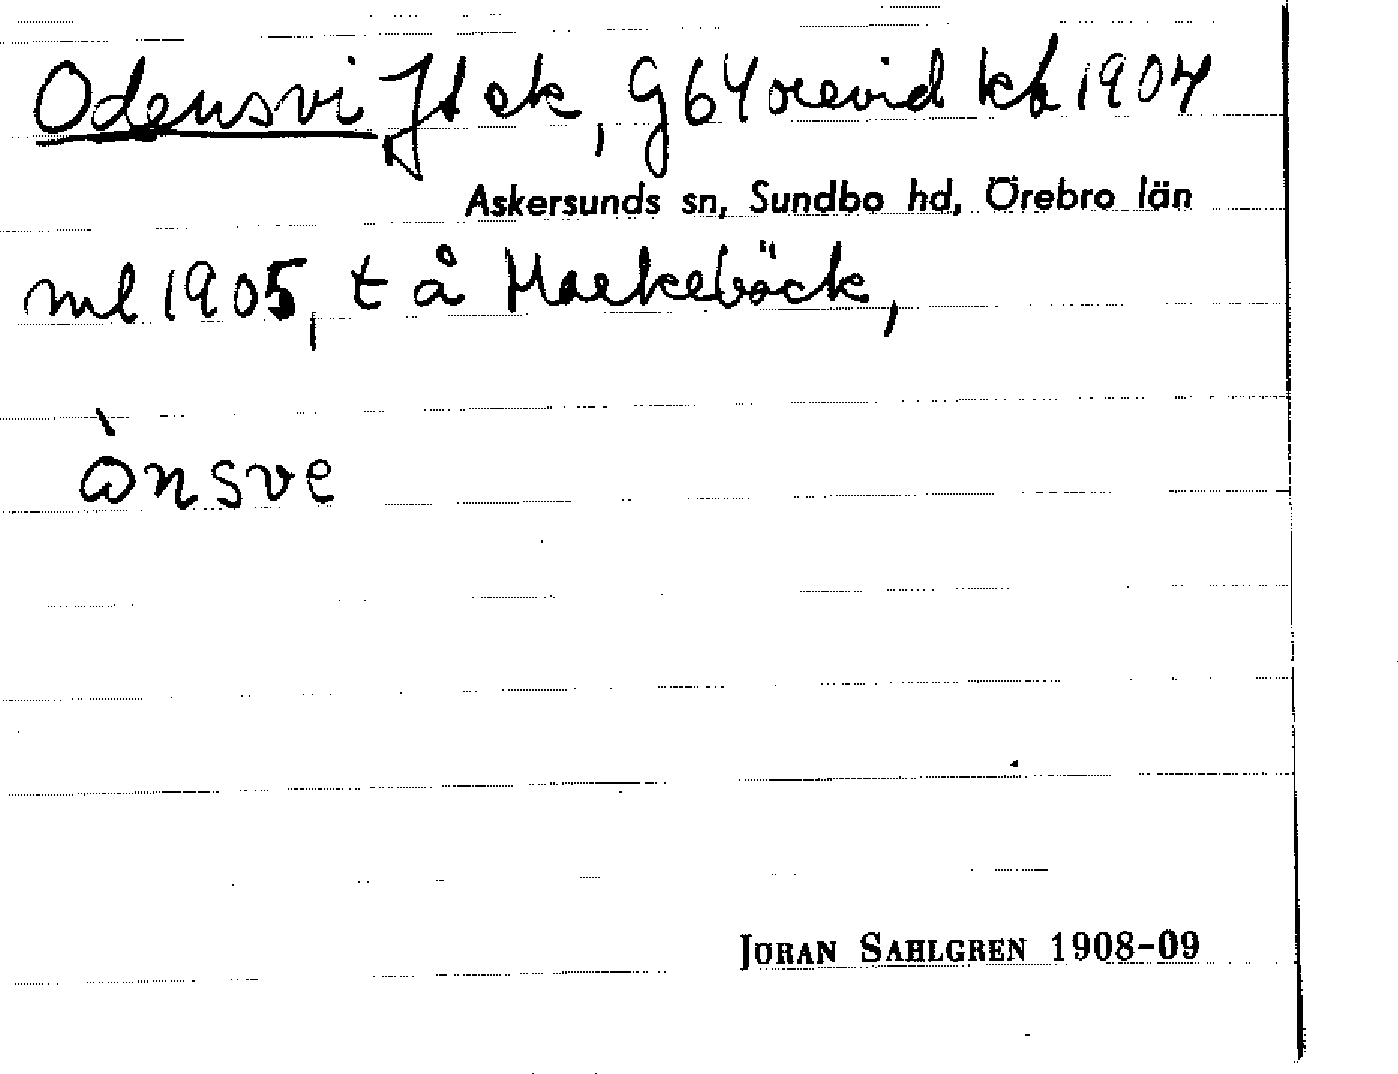 Odensvi Jd ek, G64 orevid kb 1907
Askersunds sn, Sundbo hd, Örebro län
ml 1905, t å Markebäck,
ònsve
JÖRAN SAHLGREN 1908-09